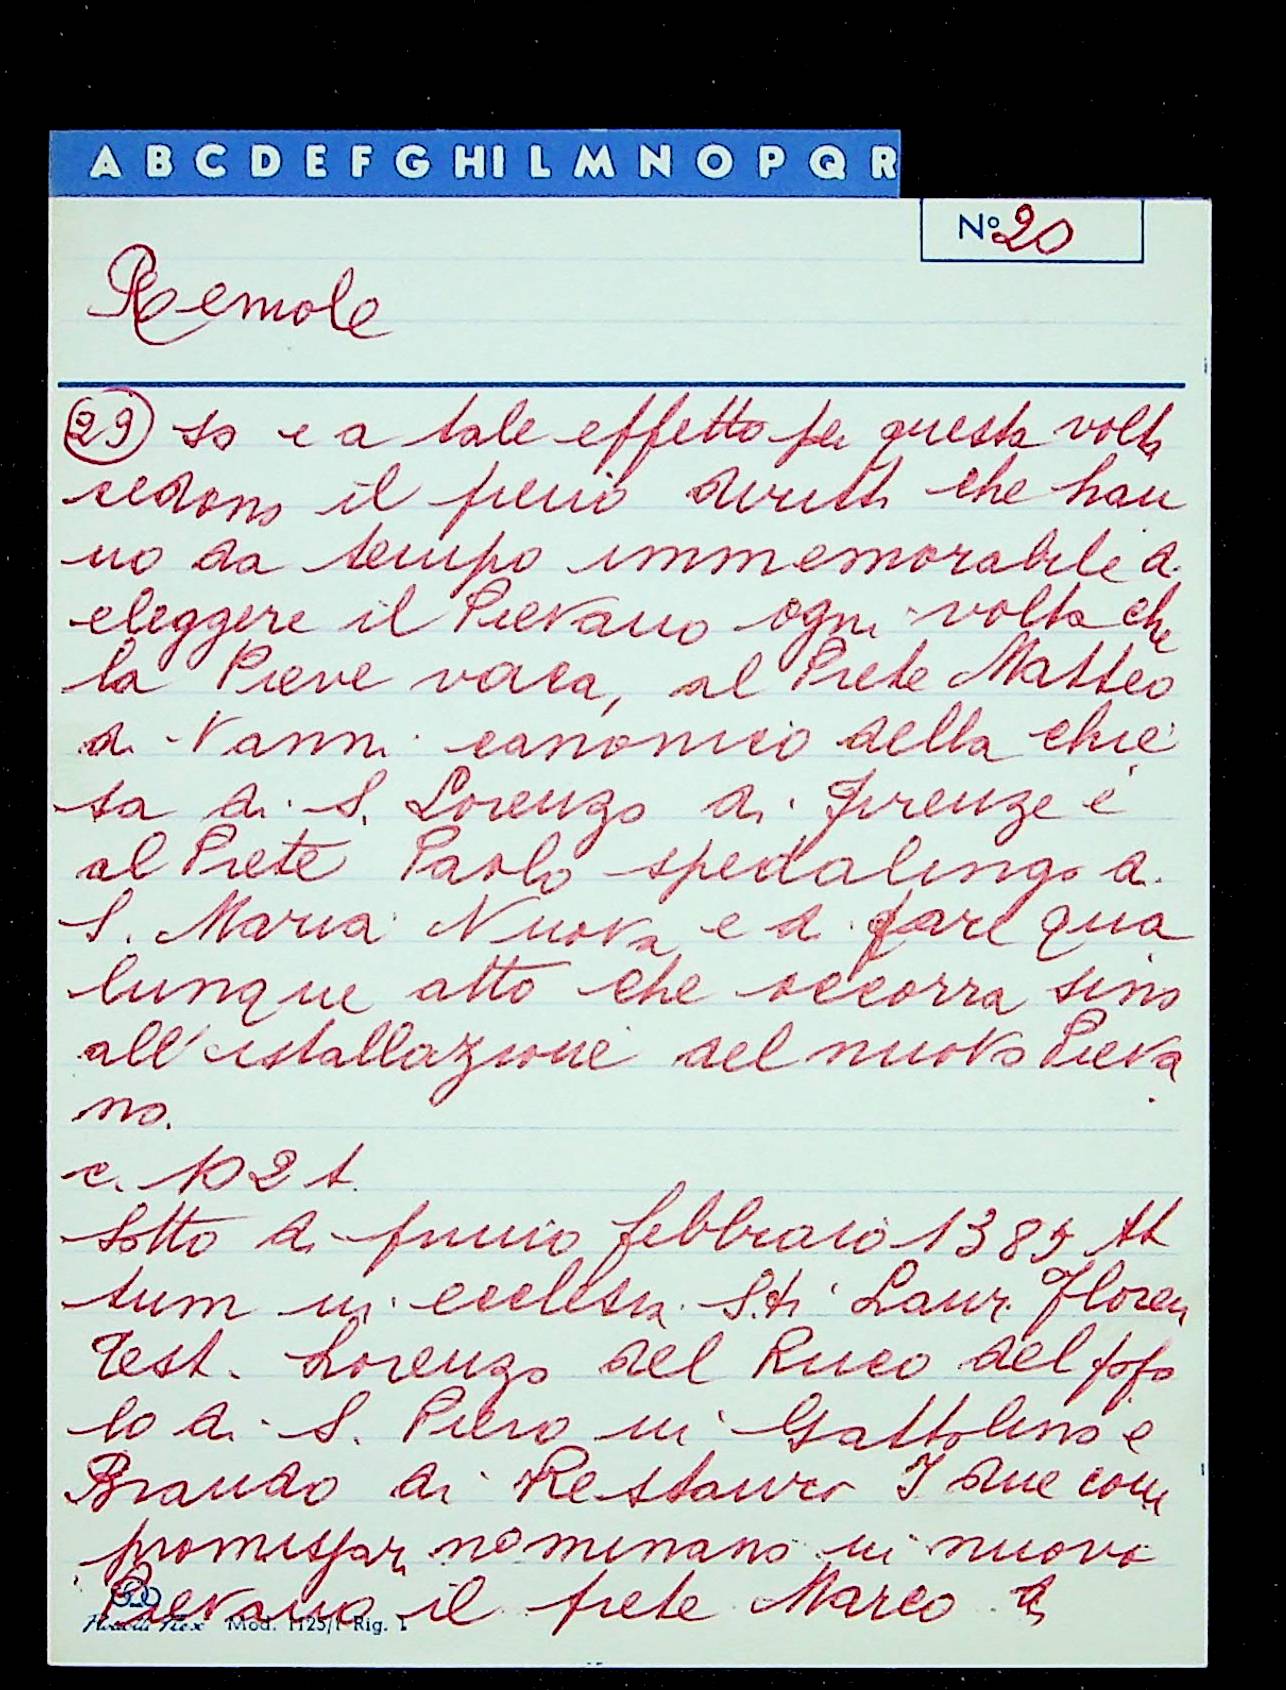 A B C D E F G H I L M N O P Q R
Nº 20
Remole
(29) so e a tale effetto per questa volta
cedono il pieno diritto che han
no da tempo immemorabile di
eleggere il Pievano ogni volta che
la Pieve vaca, al Prete Matteo
di Vanni canonico della chie
sa di S. Lorenzo di Firenze e
al Prete Paolo spedalingo di
S. Maria Nuova e di fare qua
lunque atto che occorra sino
all'istallazione del nuovo Pieva
no.
c. 102 t.
Sotto di primo febbraio 1385 At
tum in ecclesia S.ti Laur. Floren
Test. Lorenzo del Ricco del popo
lo di S. Piero in Gattolino e
Brando di Restauro I due com
promissari nominano in nuovo
Pievano il prete Marco di
Mod. 1125/1 Rig. 1